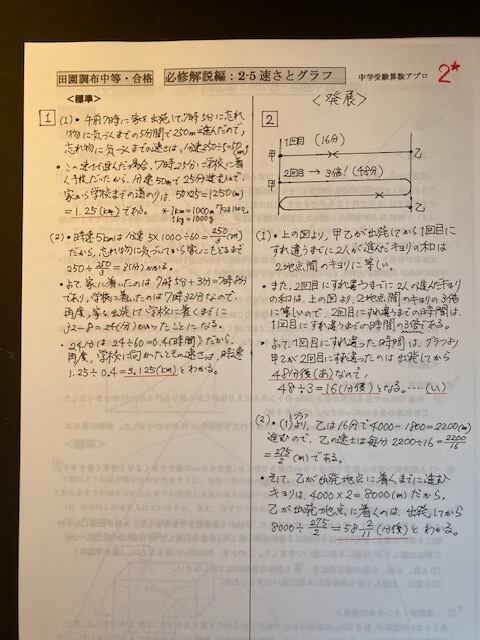 田園調布中等・合格
必修解説編：2-5 速さとグラフ
中学受験算数アプロ
2*
＜標準＞
1
(1)・午前7時に家を出発して、7時5分に忘れ
物に気づくまでの5分間で250m進んだので、
忘れ物に気づくまでの速さは、分速250÷5=50(m)
・この速さで進んだ場合、7時25分に学校に着
く予定だったから、分速50mで25分進むんで、
家から学校までの道のりは、50×25=1250(m)
=1.25(km)である。 *1km=1000m
1kg=1000g
(2)・時速5kmは分速 5×1000÷60=250/3(m)
だから、忘れ物に気づいてから家にもどるまで
250÷250/3=3(分)かかる。
・よって、家に着いたのは7時5分+3分=7時8分
であり、学校に着いたのは7時32分なので、
再度、家を出発して学校に着くまでに
32-8=24(分)かかったことになる。
・24分は 24÷60=0.4(時間)だから、
再度、学校に向かったときの速さは、時速
1.25÷0.4=3.125(km)とわかる。
＜発展＞
2
1回目 (16分)
甲
乙
2回目→3倍! (48分)
甲
乙
(1)・上の図より、甲乙が出発してから1回目に
すれ違うまでに2人が進んだキョリの和は
2地点間のキョリに等しい。
・また、2回目にすれ違うまでに2人の進んだキョリ
の和は、上の図より、2地点間のキョリの3倍
に等しいので、2回目にすれ違うまでの時間は、
1回目にすれ違うまでの時間の3倍である。
・よって、1回目にすれ違った時間は、グラフより
甲乙が2回目にすれ違ったのは出発してから
48分後(あ)なので、
48÷3=16(分後)となる。……(い)
(2)・(1)とグラフより、乙は16分で4000-1800=2200(m)
進むので、乙の速さは毎分 2200÷16=2200/16
=275/2(m)である。
・そして、乙が出発地点に着くまでに進む
キョリは、4000×2=8000(m)だから、
乙が出発地点に着くのは、出発してから
8000÷275/2=58 2/11(分後)とわかる。